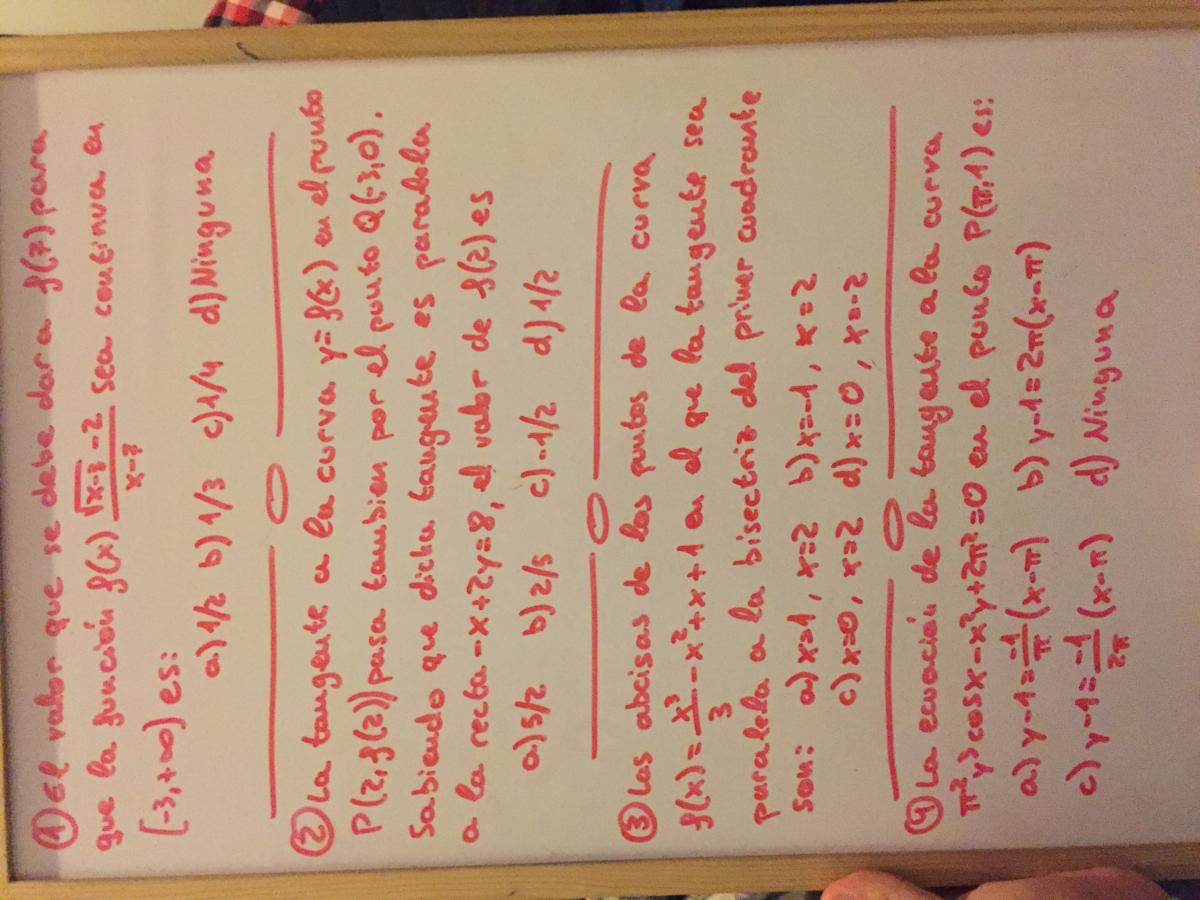 ① El valor que se debe dar a f(7) para
que la función f(x) √x-3 -2 / x-7 sea continua en
[-3,+∞) es:
a) 1/2 b) 1/3 c) 1/4 d) Ninguna
② La tangente a la curva y=f(x) en el punto
P(2, f(2)) pasa tambien por el punto Q(-3,0).
Sabiendo que dicha tangente es paralela
a la recta -x+2y=8, el valor de f(2) es
a) 5/2 b) 2/5 c) -1/2 d) 1/2
③ Las abcisas de los puntos de la curva
f(x) = x³/3 - x² + x + 1 en el que la tangente sea
paralela a la bisectriz del primer cuadrante
son: a) x=1, x=2 b) x=-1, x=2
c) x=0, x=2 d) x=0, x=-2
④ La ecuación de la tangente a la curva
π²y³cosx - x²y + 2π² = 0 en el punto P(π,1) es:
a) y-1 = -1/π (x-π) b) y-1 = 2π(x-π)
c) y-1 = -1/2π (x-π) d) Ninguna